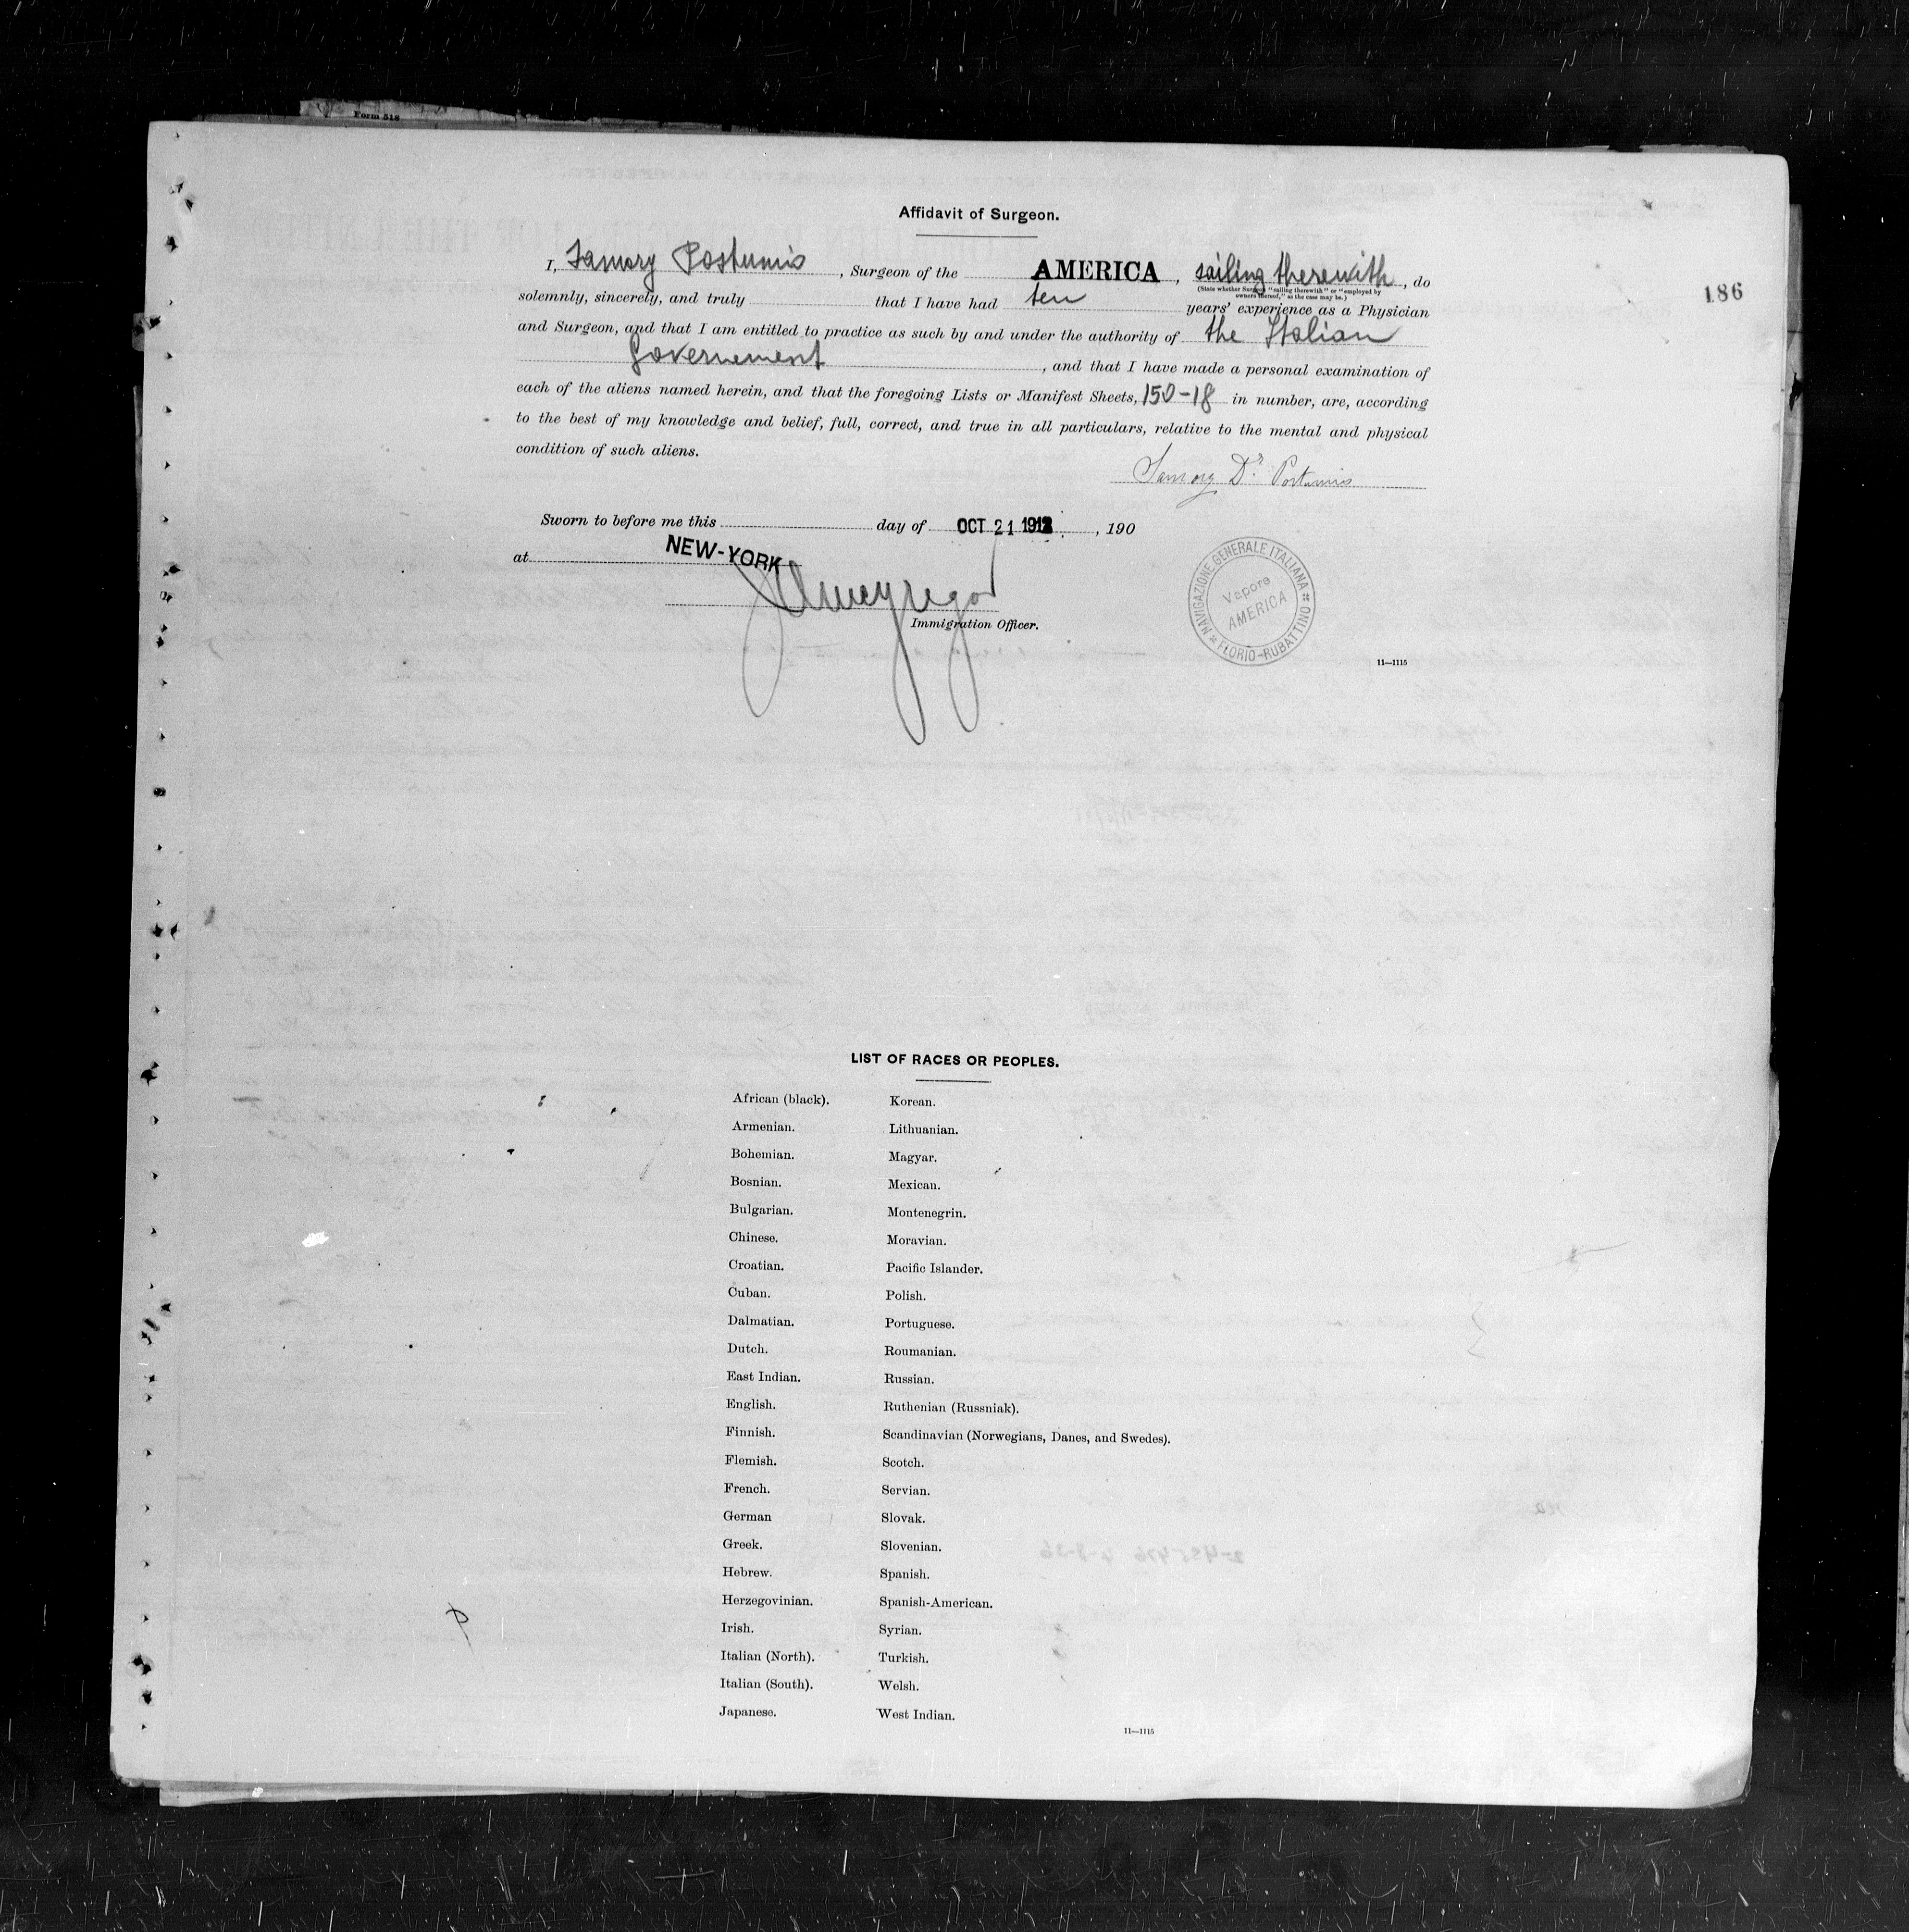 Form 518
Affidavit of Surgeon.
I, Samory Postumio, Surgeon of the AMERICA, sailing therewith, do
(State whether Surgeon "sailing therewith" or "employed by
owners thereof," as the case may be.)
186
solemnly, sincerely, and truly that I have had ten years' experience as a Physician
and Surgeon, and that I am entitled to practice as such by and under the authority of the Italian
Governement, and that I have made a personal examination of
each of the aliens named herein, and that the foregoing Lists or Manifest Sheets, 150-18 in number, are, according
to the best of my knowledge and belief, full, correct, and true in all particulars, relative to the mental and physical
condition of such aliens.
Samory Dr. Postumio
Sworn to before me this day of OCT 21 1912, 190
at NEW-YORK
Immigration Officer.
NAVIGAZIONE GENERALE ITALIANA
FLORIO-RUBATTINO
Vapore
AMERICA
11—1115
LIST OF RACES OR PEOPLES.
African (black). Korean.
Armenian. Lithuanian.
Bohemian. Magyar.
Bosnian. Mexican.
Bulgarian. Montenegrin.
Chinese. Moravian.
Croatian. Pacific Islander.
Cuban. Polish.
Dalmatian. Portuguese.
Dutch. Roumanian.
East Indian. Russian.
English. Ruthenian (Russniak).
Finnish. Scandinavian (Norwegians, Danes, and Swedes).
Flemish. Scotch.
French. Servian.
German Slovak.
Greek. Slovenian.
Hebrew. Spanish.
Herzegovinian. Spanish-American.
Irish. Syrian.
Italian (North). Turkish.
Italian (South). Welsh.
Japanese. West Indian.
11—1115